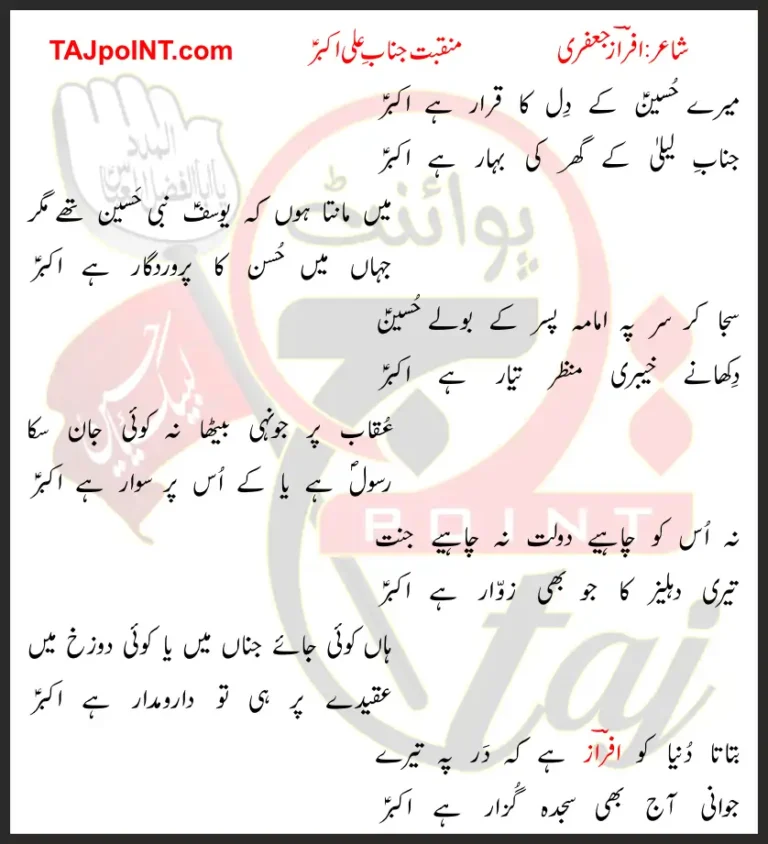 شاعر: افرازؔ جعفری منقبت جنابِ علی اکبرؑ TAJpoINT.com
میرے حُسینؑ کے دِل کا قرار ہے اکبرؑ
جنابِ لیلیٰ کے گھر کی بہار ہے اکبرؑ
میں مانتا ہوں کہ یوسفؑ نبی حَسین تھے مگر
جہاں میں حُسن کا پروردگار ہے اکبرؑ
سجا کر سر پہ امامہ پسر کے بولے حُسینؑ
دِکھانے خیبری منظر تیار ہے اکبرؑ
عُقاب پر جونہی بیٹھا نہ کوئی جان سکا
رسولؐ ہے یا کے اُس پر سوار ہے اکبرؑ
نہ اُس کو چاہیے دولت نہ چاہیے جنت
تیری دہلیز کا جو بھی زوّار ہے اکبرؑ
ہاں کوئی جائے جناں میں یا کوئی دوزخ میں
عقیدے پر ہی تو دارومدار ہے اکبرؑ
بتاتا دُنیا کو افرازؔ ہے کہ دَر پہ تیرے
جوانی آج بھی سجدہ گُزار ہے اکبرؑ
المدد
یا ابالفضل العباس
لبیک یا حسین
پوائنٹ
تاج
POINT
taj